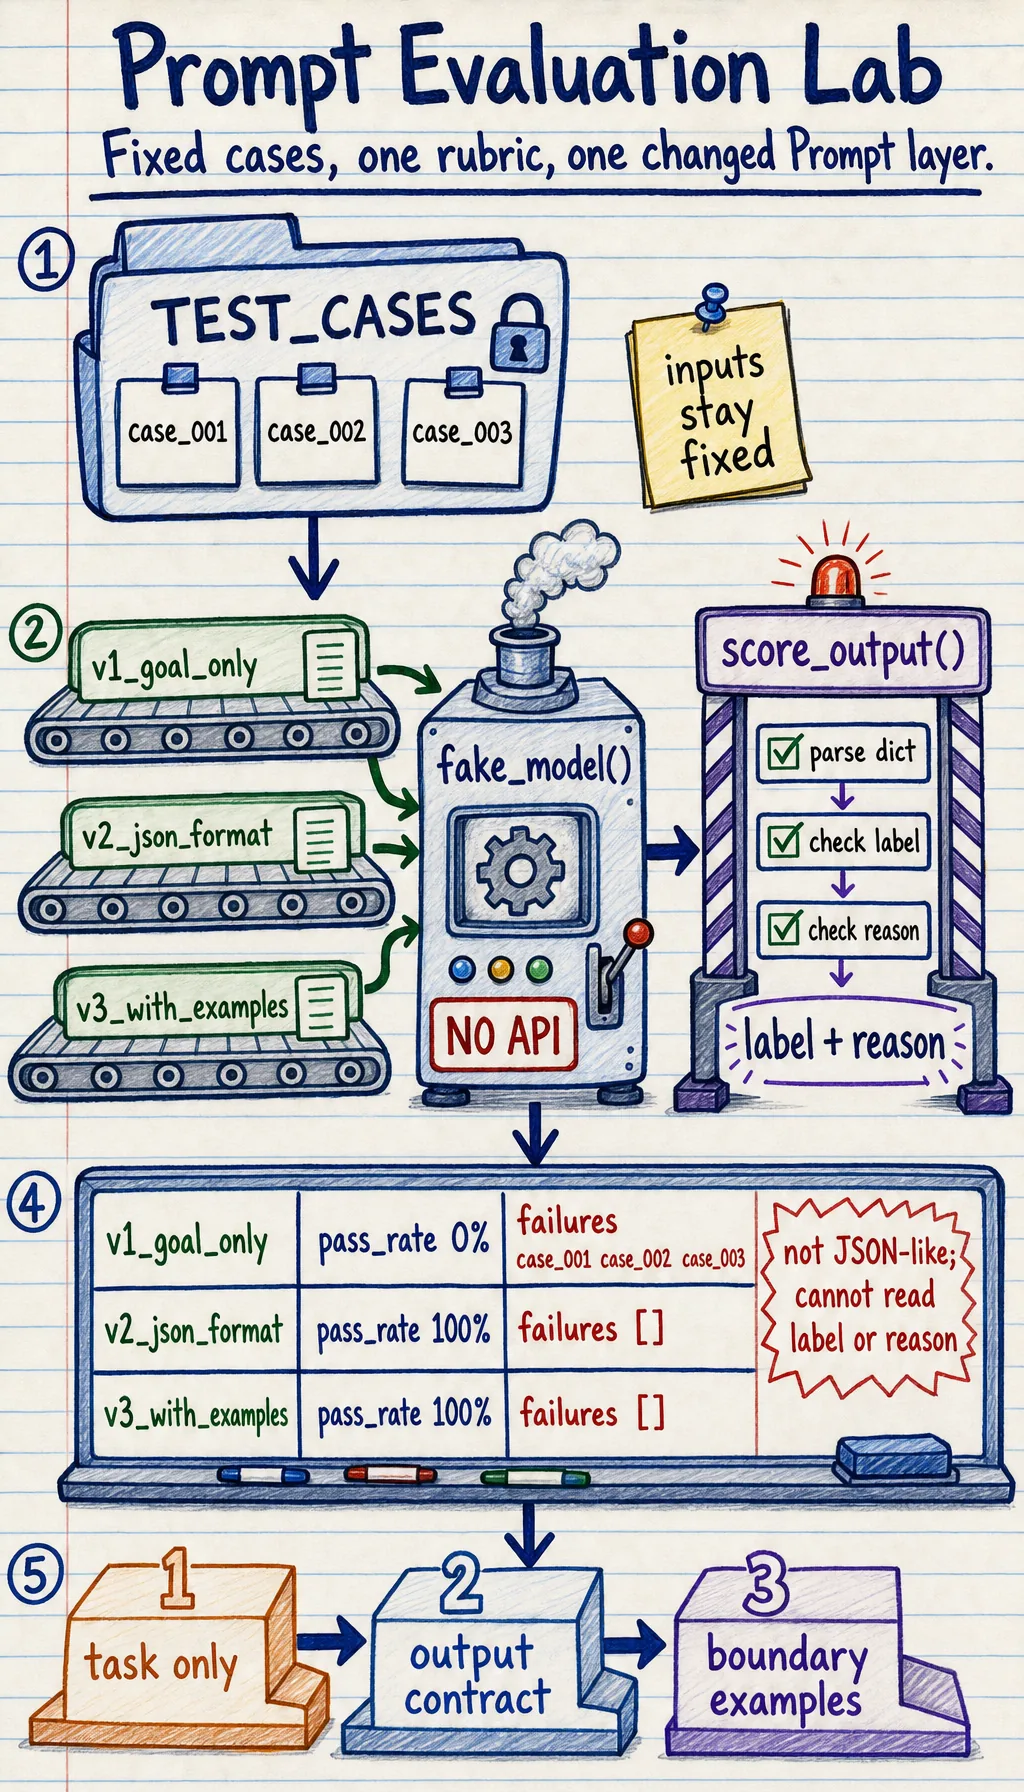 Prompt Evaluation Lab
Fixed cases, one rubric, one changed Prompt layer.
1
TEST_CASES
case_001
case_002
case_003
inputs
stay
fixed
2
v1_goal_only
v2_json_format
v3_with_examples
fake_model()
NO API
score_output()
parse dict
check label
check reason
label + reason
4
v1_goal_only
pass_rate 0%
failures
case_001 case_002 case_003
v2_json_format
pass_rate 100%
failures []
v3_with_examples
pass_rate 100%
failures []
not JSON-like;
cannot read
label or reason
5
1
task only
2
output
contract
3
boundary
examples